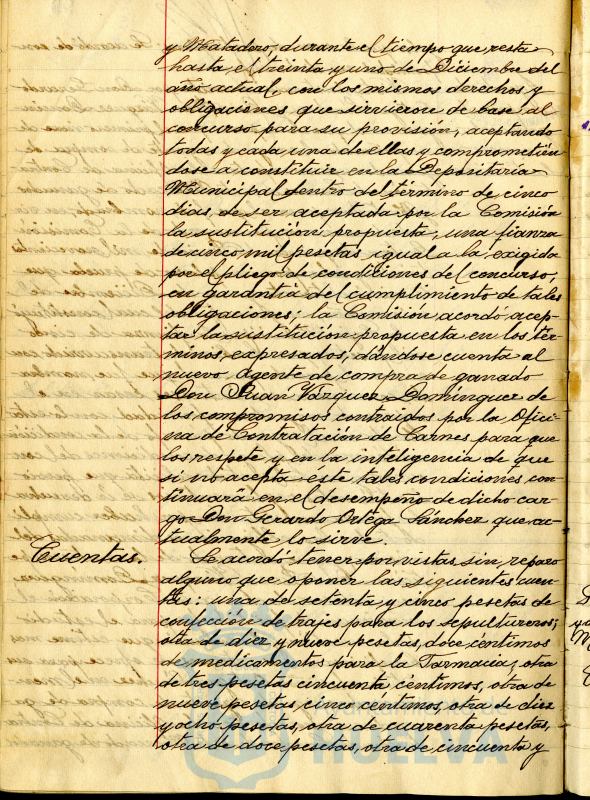 y Matadero, durante el tiempo que resta
hasta el treinta y uno de Diciembre del
año actual, con los mismos derechos y
obligaciones que sirvieron de base al
concurso para su provisión, aceptando
todas y cada una de ellas y comprometién
dose a constituir en la Depositaria
Municipal dentro del término de cinco
dias, de ser aceptada por la Comisión
la sustitución propuesta, una fianza
de cinco mil pesetas igual a la exigida
por el pliego de condiciones del concurso,
en garantia del cumplimiento de tales
obligaciones; la Comisión acordo acep-
tar la sustitución propuesta en los tér-
minos, expresados, dándose cuenta al
nuevo Agente de compra de ganado
Don Juan Vázquez Dominguez de
los compromisos contraidos por la Ofici
na de Contratación de Carnes para que
los respete y en la inteligencia de que
si no acepta éste tales condiciones con-
tinuará en el desempeño de dicho car-
go Don Gerardo Ortega Sánchez que ac-
tualmente lo sirve.
Cuentas.
Se acordó tener por vistas sin reparo
alguno que oponer las siguientes cuen-
tas: una de setenta y cinco pesetas de
confección de trajes para los sepultureros;
otra de diez y nueve pesetas, doce céntimos
de medicamentos para la Farmacia; otra
de tres pesetas cincuenta céntimos, otra de
nueve pesetas, cinco céntimos, otra de diez
y ocho pesetas, otra de cuarenta pesetas,
otra de doce pesetas, otra de cincuenta y
HUELVA